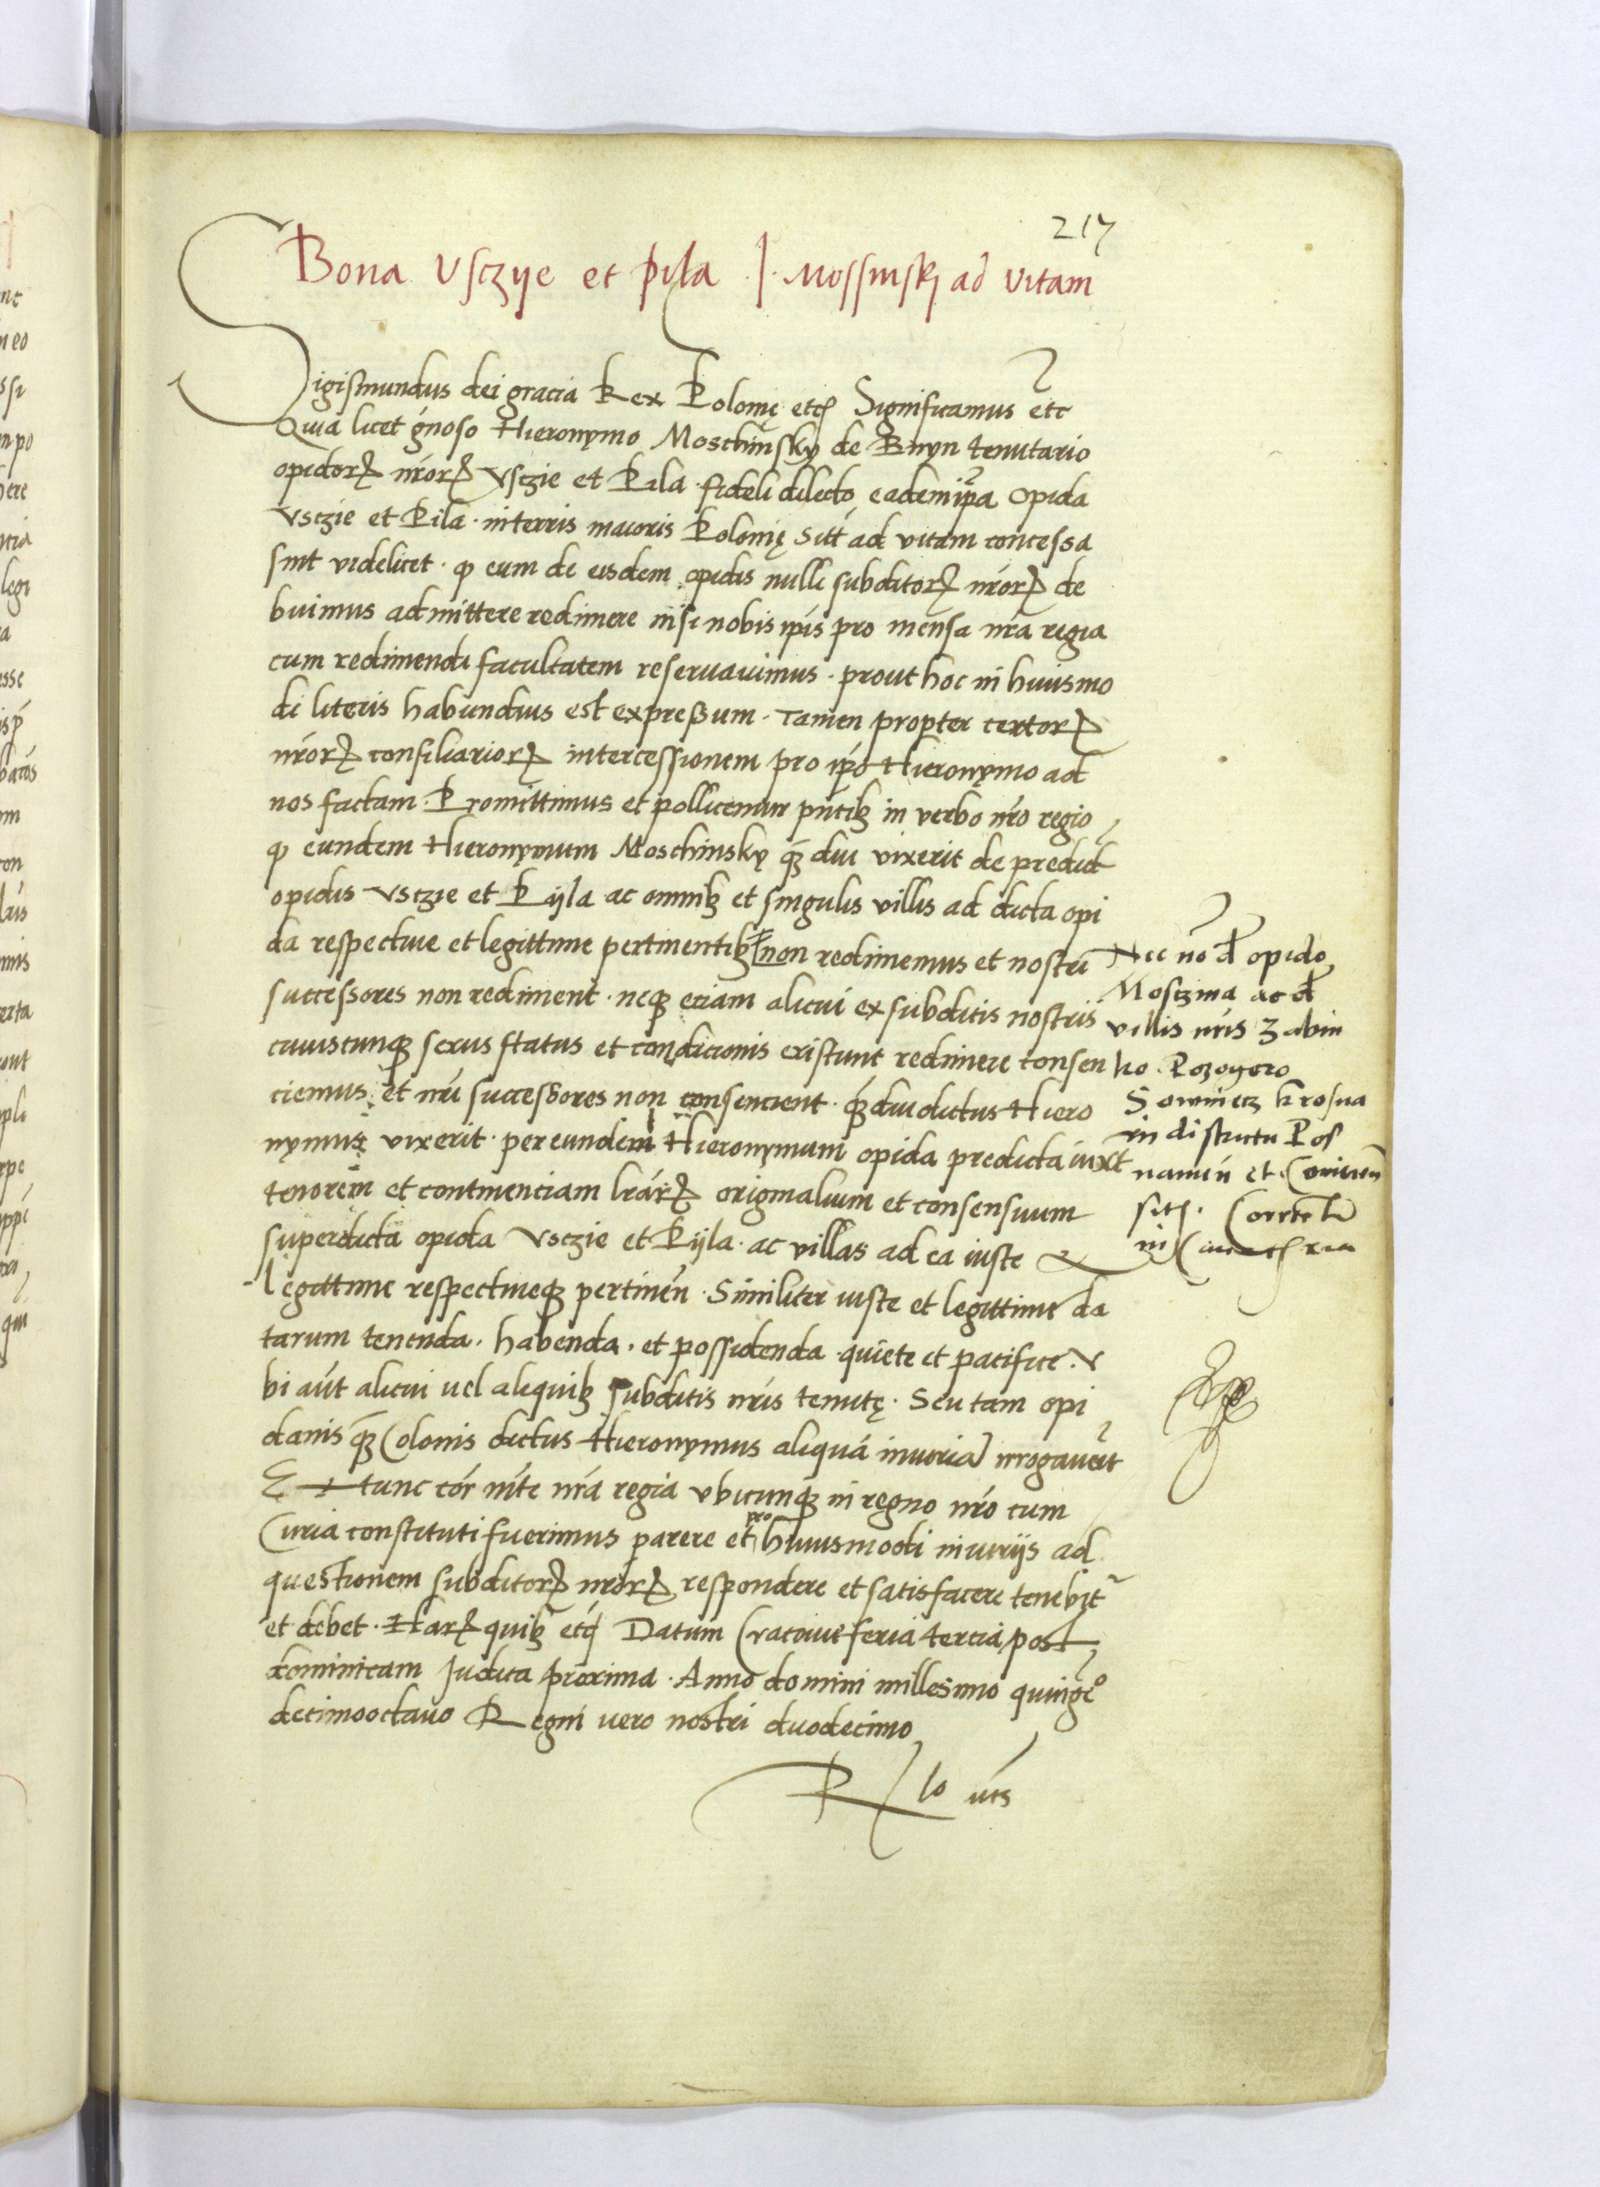 217
Bona Vsczye et pila J. Mossinskj ad vitam
Sigismundus dei gracia Rex Polonię etc̄ Significamus etc
Quia licet gn̄oso Hieronymo Moschinsky de Bnyn tenutario
opidorꝝ nr̄orꝝ Vsczie et Pila fideli dilecto eadem ip̄a opida
Vsczie et Pila · in terris maioris Polonię sitt̄ ad vitam concessa
sint videlicet · ꝙ eum de eisdem opidis nulli subditorꝝ nr̄orꝝ de
buimus admittere redimere nisi nobis ip̄is pro mensa nr̄a regia
cum redimendi facultatem reservavimus · prout hoc in huiusmo
di literis habundius est expreßum · Tamen propter certorꝝ
nr̄orꝝ consiliariorꝝ intercessionem pro ip̄o Hieronymo ad
nos factam · Promittimus et pollicemur pn̄tibꝫ in verbo nr̄o regio
ꝙ eundem Hieronymum Moschinsky qꝫ̄ diu vixerit de predict̄
opidis Vsczie et Pijla ac omnibꝫ et singulis villis ad dicta opi
da respective et legittime pertinentibꝫ non redimemus et nostri
successores non rediment · neqꝫ eciam alicui ex subditis nostris
cuiuscunqꝫ sexus status et condicionis existunt redimere consen
ciemus et nr̄i successores non consencient · qꝫ̄diu dictus Hiero
nymus vixerit · per eundem Hieronymum opida predicta iuxt̄
tenorem et continenciam lr̄arꝝ originalium et consensuum
super dicta opida Vsczie et Pijla · ac villas ad ea iuste &
legittime respectiueqꝫ pertinen̄ · Similiter iuste et legittime da
tarum tenenda · habenda · et possidenda · quiete et pacifice · V
bi aut̄ alicui vel aliquibꝫ subditis nr̄is tenutę · Seu tam opi
danis qꝫ̄ Colonis dictus Hieronymus aliquā iniuriam irrogaverit
Ex tunc cor̄ m̄te nr̄a regia vbicunqꝫ in regno nr̄o cum
Curia constituti fuerimus parere et pro huiusmodi iniurijs ad
questionem subditorꝝ nr̄orꝝ respondere et satisfacere tenebit̄
et debet · Harꝝ quibꝫ etc̄ Datum Cracovie feria tercia post
dominicam Judica proxima · Anno domini millesimo quinge͏ͦ
decimooctavo Regni vero nostri duodecimo
Nec no̅ de opido
Mosczina ac de
villis nr̄is Zabin
ko · Pozogowo
Sowiniecz Krosna
in districtu Pos
nanien̄ et
sit̄ · Correct̄
in
R